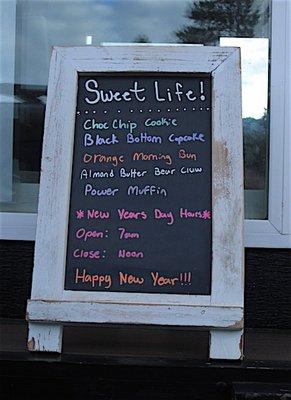 Sweet Life!
Choc Chip Cookie
Black Bottom Cupcake
Orange Morning Bun
Almond Butter Bear Claw
Power Muffin
*New Years Day Hours*
Open: 7am
Close: Noon
Happy New Year!!!